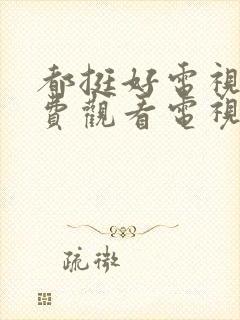 都挺好電視
費觀看電視
疏微